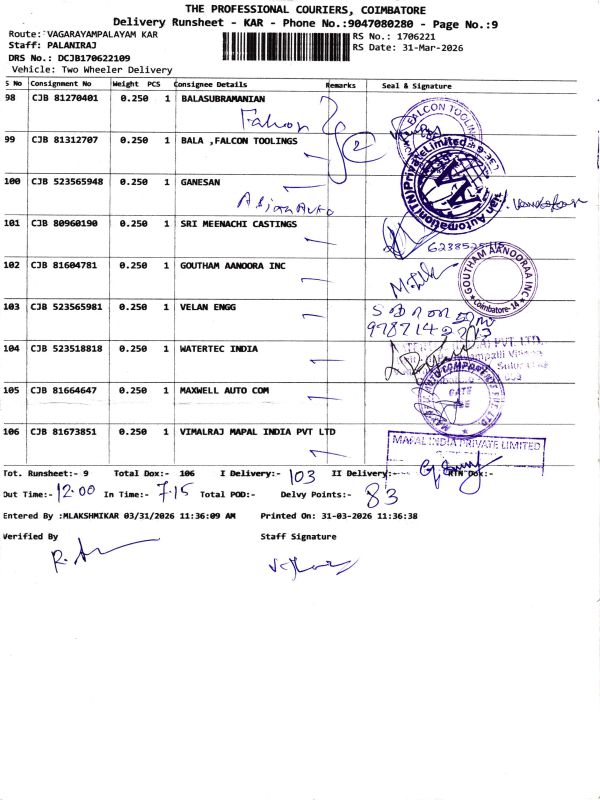 THE PROFESSIONAL COURIERS, COIMBATORE
Delivery Runsheet - KAR - Phone No.:9047080280 - Page No.:9
Route: VAGARAYAMPALAYAM KAR
RS No.: 1706221
Staff: PALANIRAJ
RS Date: 31-Mar-2026
DRS No.: DCJB170622109
Vehicle: Two Wheeler Delivery
S No Consignment No Weight PCS Consignee Details Remarks Seal & Signature
98 CJB 81270401 0.250 1 BALASUBRAMANIAN
Falcon
FALCON TOOLING
99 CJB 81312707 0.250 1 BALA ,FALCON TOOLINGS
2
Automation(TN)Private Limited
100 CJB 523565948 0.250 1 GANESAN
Auto
101 CJB 80960190 0.250 1 SRI MEENACHI CASTINGS
102 CJB 81604781 0.250 1 GOUTHAM AANOORA INC
GOUTHAM AANOORAA INC
Coimbatore-14
103 CJB 523565981 0.250 1 VELAN ENGG
104 CJB 523518818 0.250 1 WATERTEC INDIA
PVT. LTD.
105 CJB 81664647 0.250 1 MAXWELL AUTO COM
AUTO COMPONENTS PVT. LTD.
GATE
106 CJB 81673851 0.250 1 VIMALRAJ MAPAL INDIA PVT LTD
MAPAL INDIA PRIVATE LIMITED
Tot. Runsheet:- 9 Total Dox:- 106 I Delivery:- 103 II Delivery:- RTN Dox:-
Out Time:- 12.00 In Time:- 7.15 Total POD:- Delvy Points:- 83
Entered By :MLAKSHMIKAR 03/31/2026 11:36:09 AM Printed On: 31-03-2026 11:36:38
Verified By Staff Signature